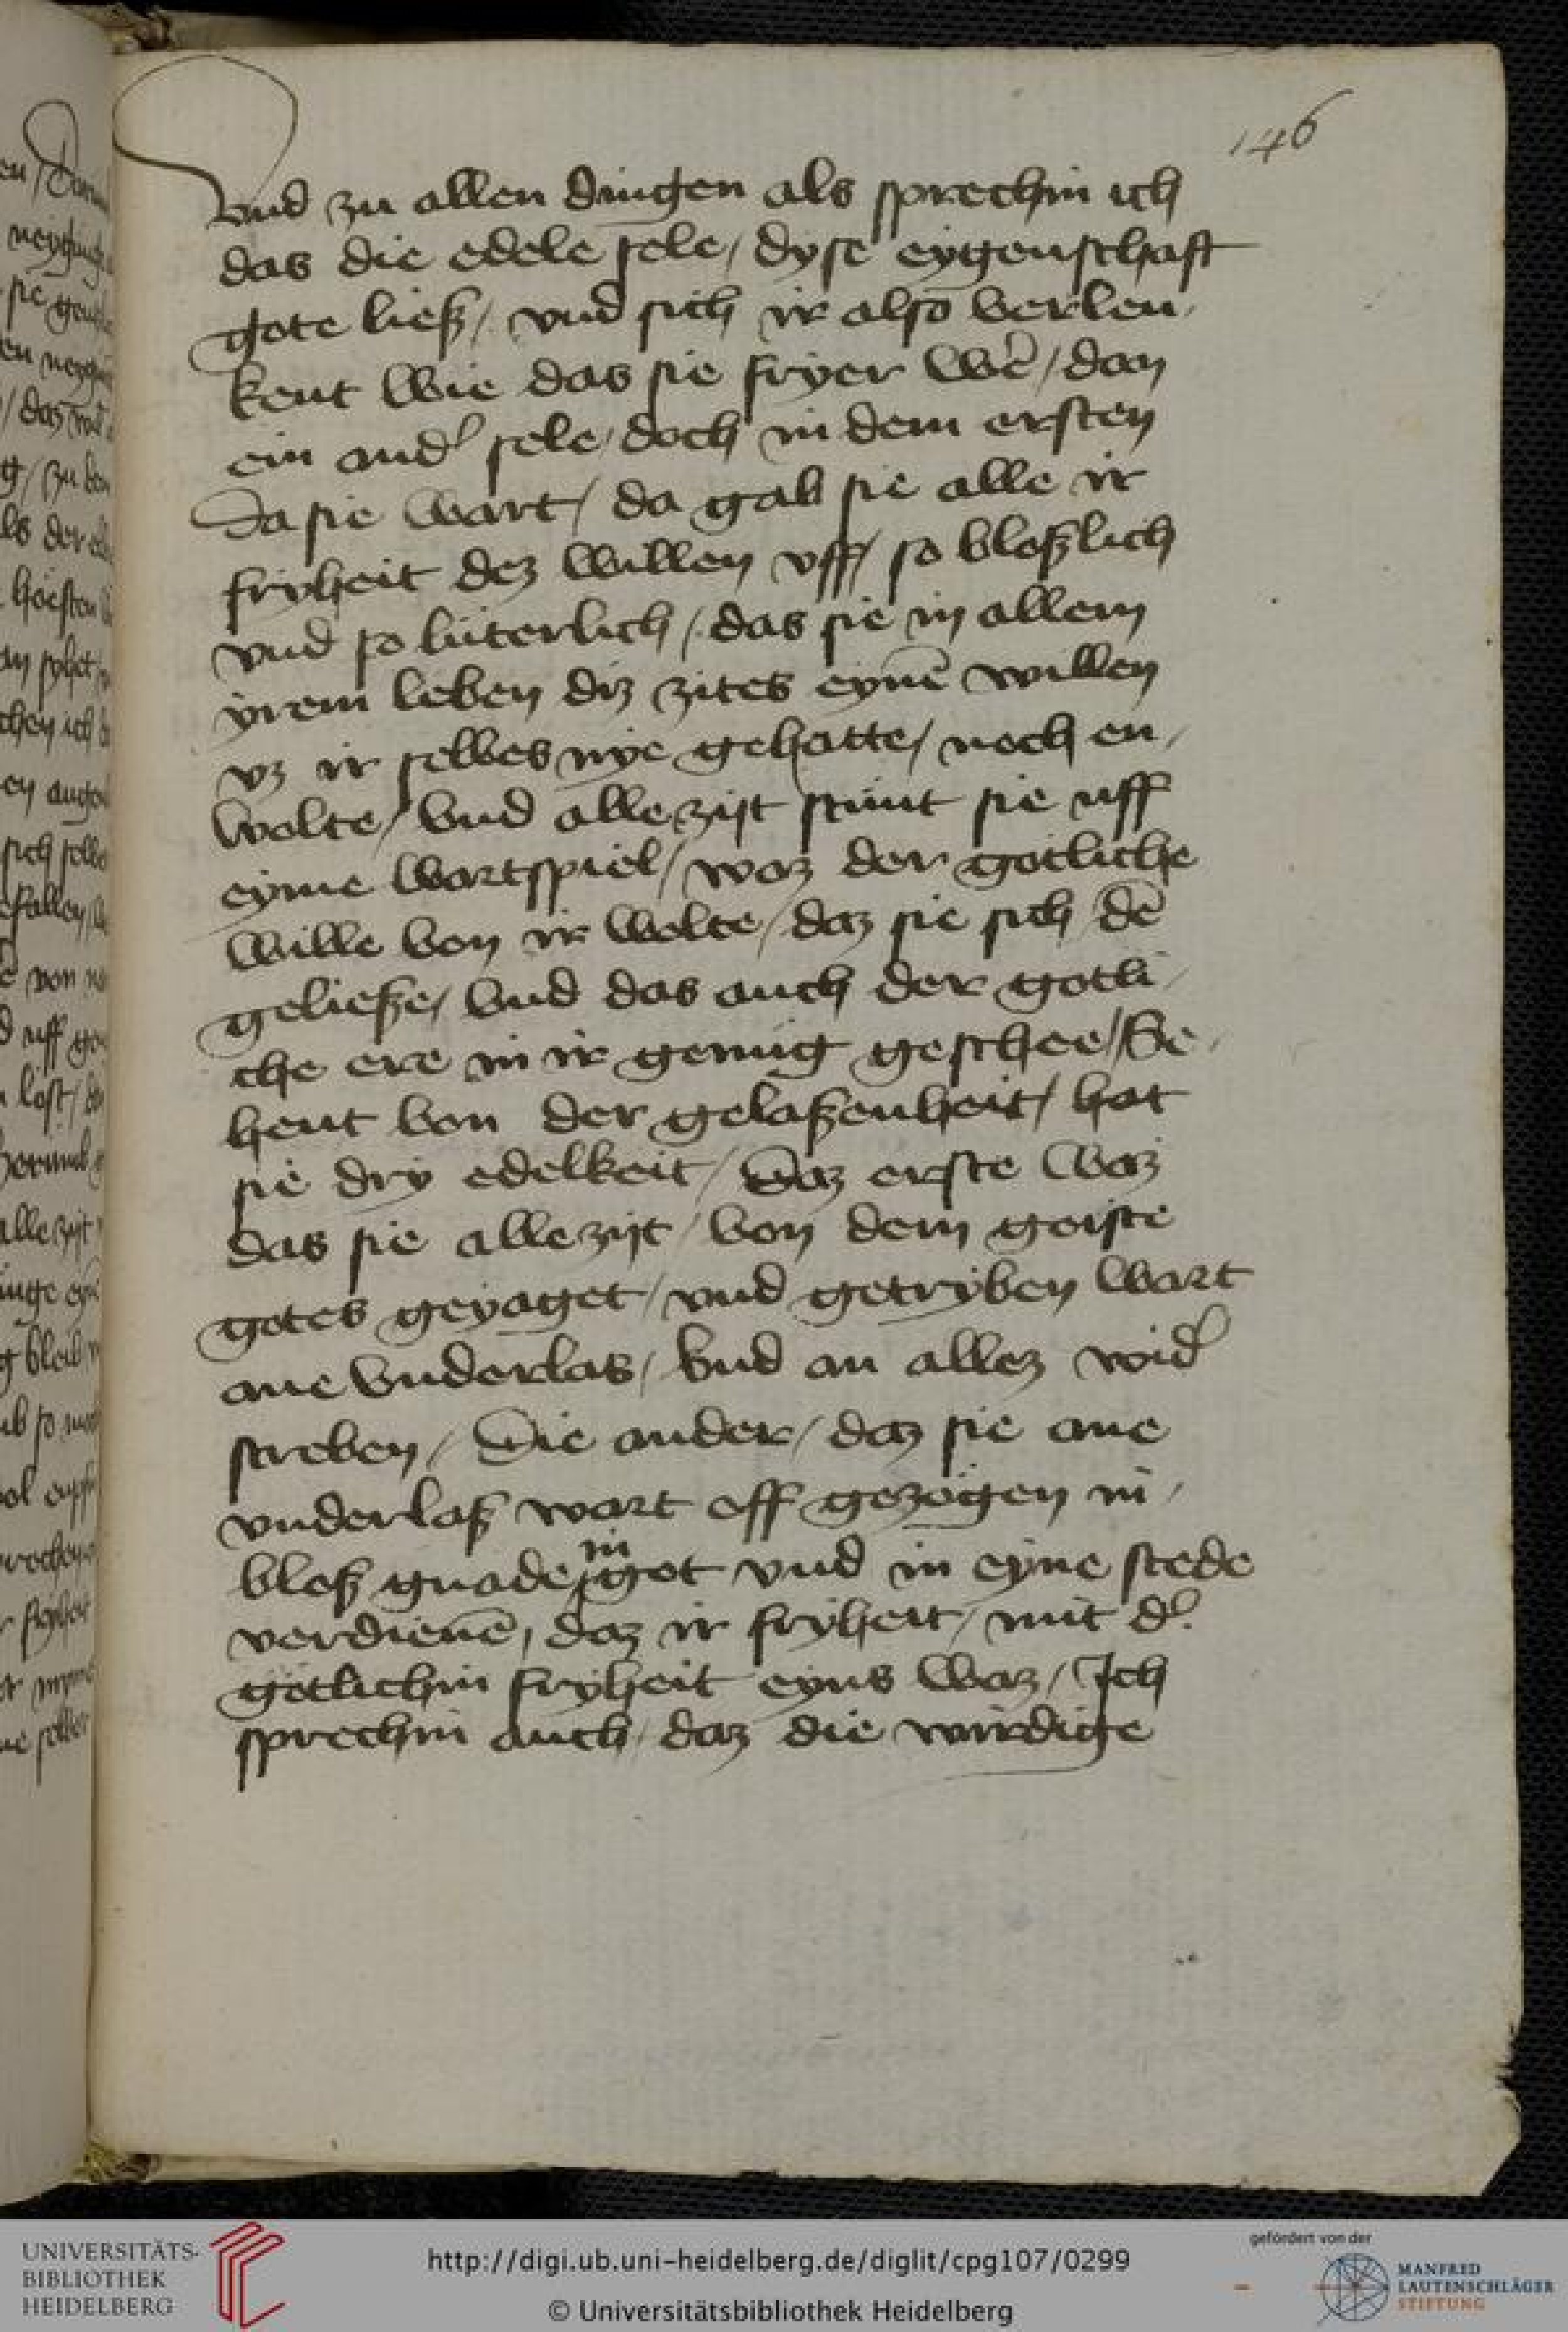 146
vnd zu allen dingen als sprechin ich
das die edele sele / dyse eygenschaft
gote ließ / vnd sich ir also verlen /
kent wie das sie fryer wē / dan
ein and' sele / doch in dem ersten
Da sie wart / da gab sie alle ir
fryheit dez willen vff / so bloßlich
vnd so luterlich / das sie in allem
yrem leben diz zites eynē willen
vz ir selbes nye gehatte / noch en /
wolte / vnd alle zijt stunt sie uff
eyme wartspiel / waz der gotliche
wille von ir wolte / daz sie sich dē
geließe / vnd das auch der gotli /
che ere in ir genug geschee / Se /
hent von der gelaßenheit / hat
sie dry edelkeit / Daz erste waz
das sie alle zijt / von dem geiste
gotes geyaget / vnd getryben wart
ane vnderlas / vnd an allez wid'
streben / Die ander / daz sie ane
vnderlaß wart off gezogen in /
bloß gnade in got vnd in eyne stede
verdienē / daz ir fryheit / mit d'
gotlichin fryheit eyns waz / Ich
sprechin auch / daz die wirdige
UNIVERSITÄTS-
BIBLIOTHEK
HEIDELBERG
http://digi.ub.uni-heidelberg.de/diglit/cpg107/0299
© Universitätsbibliothek Heidelberg
gefördert von der
MANFRED
LAUTENSCHLÄGER
STIFTUNG